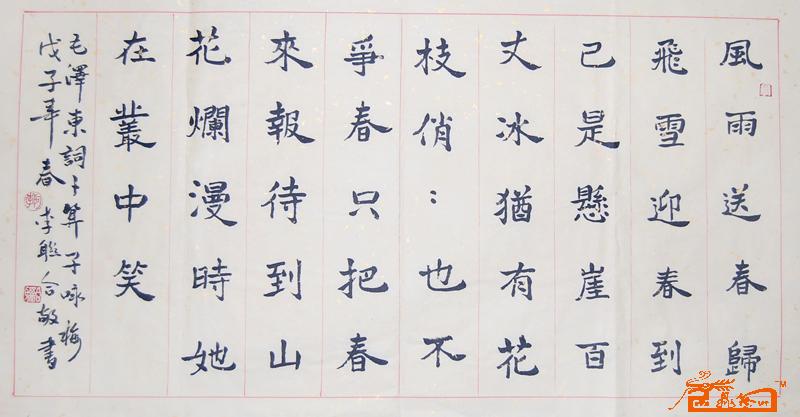 風雨送春歸
飛雪迎春到
已是懸崖百
丈冰猶有花
枝俏：也不
爭春只把春
來報待到山
花爛漫時她
在叢中笑
毛澤東詞卜算子咏梅
戊子年春李聯合敬書